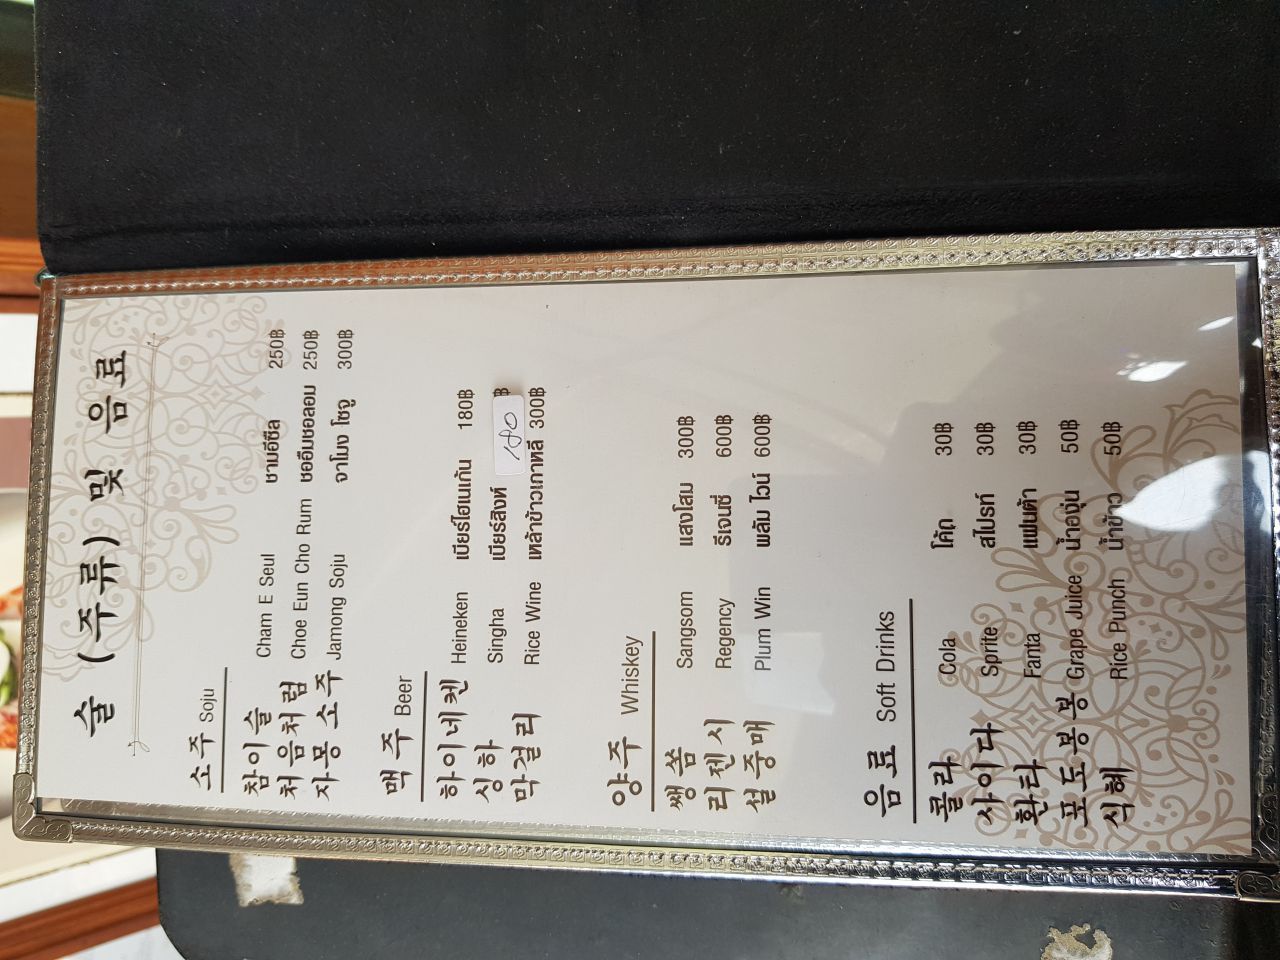 술 (주류) 및 음료
소주 Soju
참이슬 Cham E Seul ชามอีซึล 250฿
처음처럼 Choe Eun Cho Rum ชออึมชอลอม 250฿
자몽소주 Jamong Soju จาโมง โซจู 300฿
맥주 Beer
하이네켄 Heineken เบียร์ไฮเนเก้น 180฿
싱하 Singha เบียร์สิงห์ 180 ฿
막걸리 Rice Wine เหล้าข้าวเกาหลี 300฿
양주 Whiskey
쌩쏨 Sangsom แสงโสม 300฿
리젠시 Regency รีเจนซี่ 600฿
설중매 Plum Win พลัม ไวน์ 600฿
음료 Soft Drinks
콜라 Cola โค้ก 30฿
사이다 Sprite สไปรท์ 30฿
환타 Fanta แฟนต้า 30฿
포도봉봉 Grape Juice น้ำองุ่น 50฿
식혜 Rice Punch น้ำข้าว 50฿